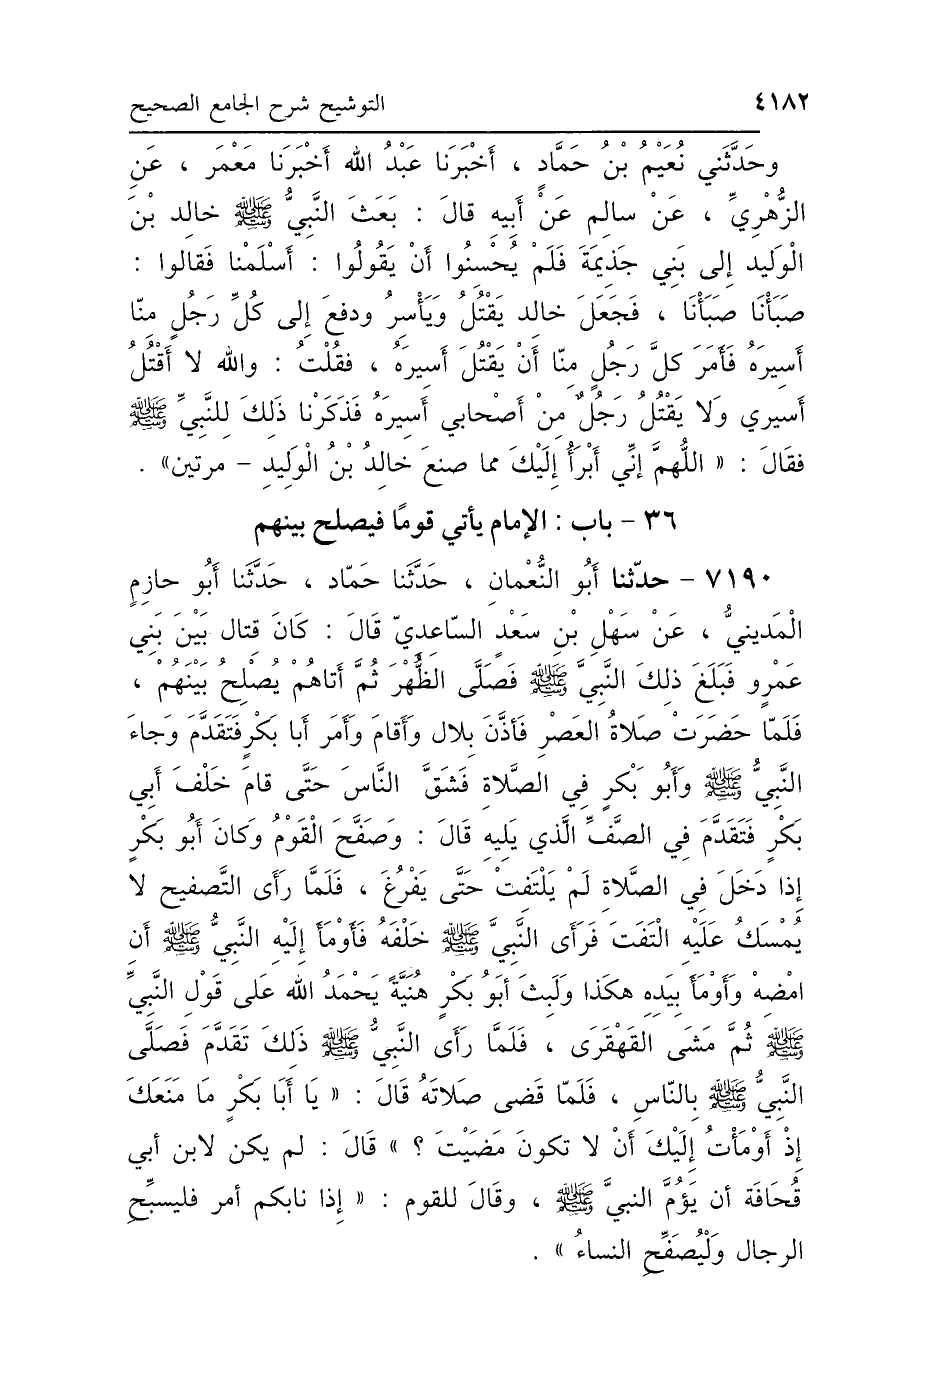 ٤١٨٢ التوشيح شرح الجامع الصحيح
وحَدَّثَني نُعَيْمُ بْنُ حَمَّادٍ ، أَخْبَرَنَا عَبْدُ الله أَخْبَرَنَا مَعْمَر ، عَنِ
الزُّهْرِيِّ ، عَنْ سالِم عَنْ أَبِيهِ قالَ : بَعَثَ النَّبِيُّ ﷺ خالِد بْنَ
الْوَلِيد إلى بَنِي جَذِيمَةَ فَلَمْ يُحْسِنُوا أَنْ يَقُولُوا : أَسْلَمْنا فَقالوا :
صَبَأْنَا صَبَأْنَا ، فَجَعَلَ خالِد يَقْتُلُ وَيَأْسِرُ ودفعَ إلى كُلِّ رَجُلٍ مِنّا
أَسِيرَهُ فَأَمَرَ كلَّ رَجُلٍ مِنّا أَنْ يَقْتُلَ أَسِيرَهُ ، فقُلْتُ : والله لا أَقْتُلُ
أَسيري وَلا يَقْتُلُ رَجُلٌ مِنْ أَصْحابي أَسيرَهُ فَذَكَرْنا ذَلِكَ لِلنَّبِيِّ ﷺ
فقَالَ : « اللَّهمَّ إنِّي أَبْرَأُ إِلَيْكَ مما صنعَ خالِدُ بْنُ الْوَلِيدِ – مرتين» .
٣٦ – باب : الإمام يأتي قومًا فيصلح بينهم
٧١٩٠ – حدّثنا أَبُو النُّعْمانِ ، حَدَّثَنا حَمّاد ، حَدَّثَنا أَبُو حازِمٍ
الْمَدينيُّ ، عَنْ سَهْلِ بْنِ سَعْدٍ السّاعِديّ قَالَ : كَانَ قِتال بَيْنَ بَنِي
عَمْرو فَبَلَغَ ذلِكَ النَّبِيَّ ﷺ فَصَلَّى الظُّهْرَ ثُمَّ أَتاهُمْ يُصْلِحُ بَيْنَهُمْ ،
فَلَمّا حَضَرَتْ صَلاةُ العَصْرِ فَأَذَّنَ بِلال وَأَقامَ وَأَمَر أَبا بَكْرٍ فَتَقَدَّمَ وَجاءَ
النَّبيُّ ﷺ وَأَبُو بَكْرٍ فِي الصَّلاةِ فَشَقَّ النَّاسَ حَتَّى قامَ خَلْفَ أَبي
بَكْرٍ فَتَقَدَّمَ فِي الصَّفِّ الَّذي يَلِيهِ قَالَ : وَصَفَّحَ الْقَوْمُ وَكانَ أَبُو بَكْرٍ
إذا دَخَلَ فِي الصَّلاةِ لَمْ يَلْتَفِتْ حَتَّى يَفْرُغَ ، فَلَمَّا رَأَى التَّصفيح لا
يُمْسَكُ عَلَيْهِ الْتَفَتَ فَرَأَى النَّبِيَّ ﷺ خَلْفَهُ فَأَوْمَأَ إِلَيْهِ النَّبِيُّ ﷺ أَنِ
امْضِهْ وَأَوْمَأَ بِيَدِهِ هكَذا ولَبِثَ أَبوُ بَكْرٍ هُنَيَّةً يَحْمَدُ الله عَلى قَوْلِ النَّبِيِّ
ﷺ ثُمَّ مَشَى القَهْقَرَى ، فَلَمَّا رَأَى النَّبِيُّ ﷺ ذَلِكَ تَقَدَّمَ فَصَلَّى
النَّبِيُّ ﷺ بِالنّاسِ ، فَلَمّا قَضى صَلاتَهُ قَالَ : « يَا أَبَا بَكْرٍ مَا مَنَعَكَ
إِذْ أَوْمَأْتُ إِلَيْكَ أَنْ لا تكونَ مَضَيْتَ ؟ » قَالَ : لم يكن لابن أبي
قُحَافَة أن يَؤُمَّ النبيَّ ﷺ ، وقَالَ للقوم : « إذا نابكم أمر فليسبِّحِ
الرجال وَلْيُصفِّحِ النساءُ » .